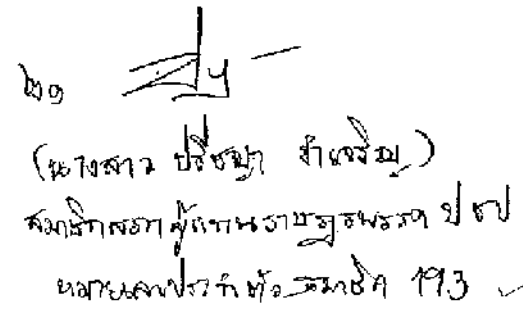 ๒๑
(นางสาว ปรัชญา จำเจริญ)
สมาชิกสภาผู้แทนราษฎรพรรค ปชป
หมายเลขประจำตัวสมาชิก 193